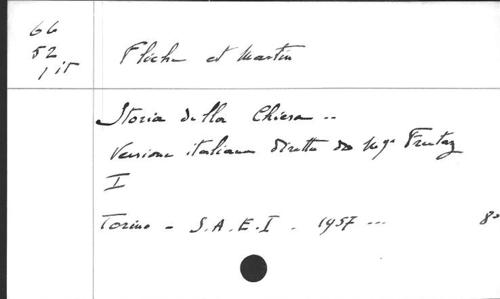 66
52
1 it
Fliche et Martin
Storia della Chiesa ..
Versione italiana diretta da Mgr Frutaz
I
Torino - S.A.E.I. 1957 ... 8°